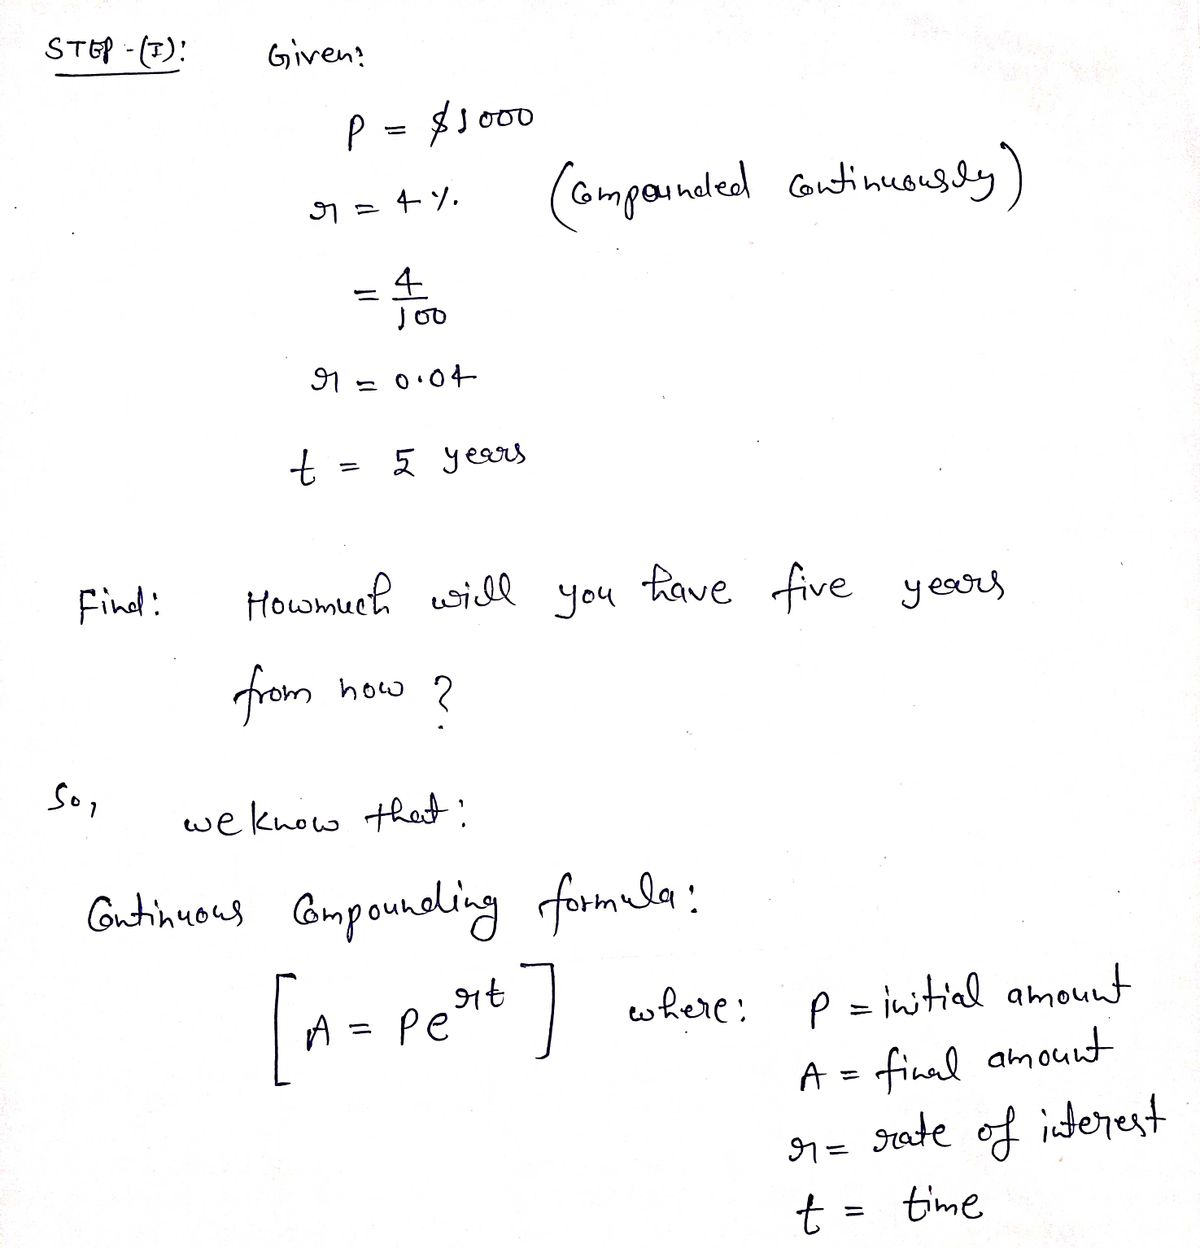 STEP-(I): Given:
P = $1000
r = 4%. (Compounded Continuously)
= 4/100
r = 0.04
t = 5 years
Find: Howmuch will you have five years
from now ?
So,
we know that:
Continuous Compounding formula:
[A = Pe^rt] where: P = initial amount
A = final amount
r = rate of interest
t = time